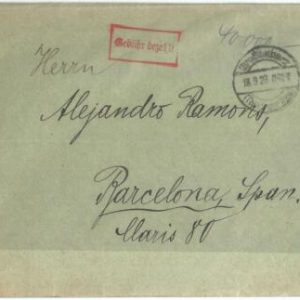 Gebühr bezahlt
Herrn
Alejandro Ramons,
Barcelona, Span.
Claris 80